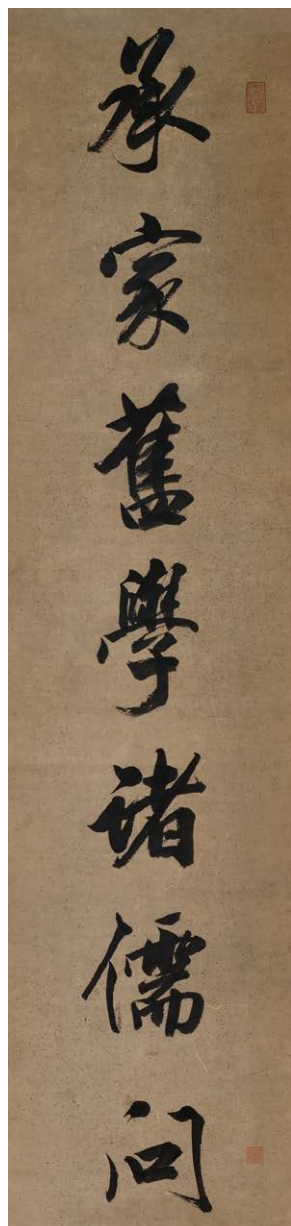 承家舊學諸儒問